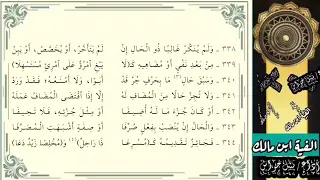 ٣٣٨ - وَلَمْ يُنَكَّرْ غَالِبًا ذُو الْحَالِ إِنْ لَمْ يَتَأَخَّرْ، أَوْ يُخَصَّصْ، أَوْ يَبِنْ
٣٣٩ - مِنْ بَعْدِ نَفْيٍ أَوْ مُضَاهِيهِ كَلَا يَبْغِ امْرُؤٌ عَلَى امْرِئٍ مُسْتَسْهِلَا
٣٤٠ - وَسَبْقَ حَالٍ مَا بِحَرْفٍ جُرَّ قَدْ أَبَوْا، وَلَا أَمْنَعُهُ، فَقَدْ وَرَدْ
٣٤١ - وَلَا تُجِزْ حَالًا مِنَ الْمُضَافِ لَهْ إِلَّا إِذَا اقْتَضَى الْمُضَافُ عَمَلَهْ
٣٤٢ - أَوْ كَانَ جُزْءَ مَا لَهُ أُضِيفَا أَوْ مِثْلَ جُزْئِهِ، فَلَا تَحِيفَا
٣٤٣ - وَالْحَالُ إِنْ يُنْصَبْ بِفِعْلٍ صُرِّفَا أَوْ صِفَةٍ أَشْبَهَتِ الْمُصَرَّفَا
٣٤٤ - فَجَائِزٌ تَقْدِيمُهُ كَمُسْرِعَا ذَا رَاحِلٌ وَمُخْلِصًا زَيْدٌ دَعَا
الفية ابن مالك